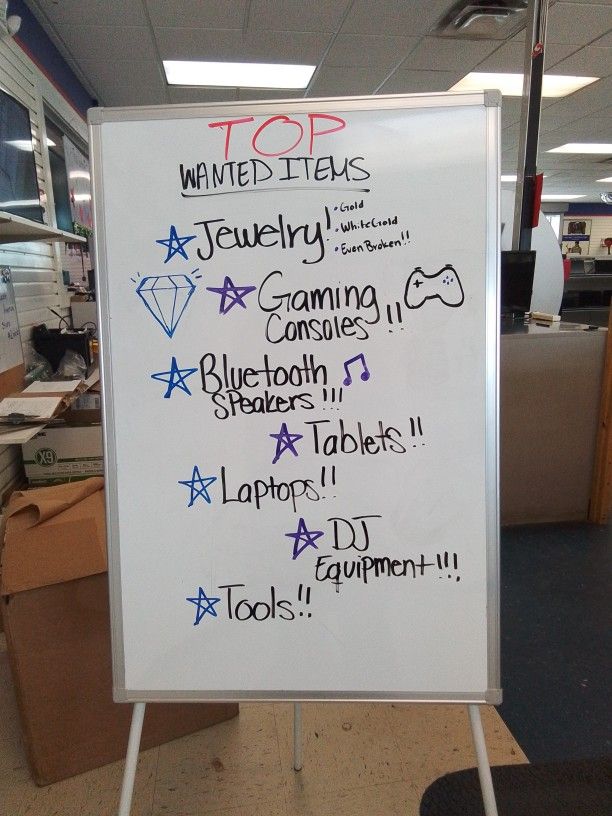 TOP
WANTED ITEMS
Jewelry!
• Gold
• White Gold
• Even Broken!!
Gaming
Consoles!!
Bluetooth
Speakers!!!
Tablets!!
Laptops!!
DJ
Equipment!!!
Tools!!
X9